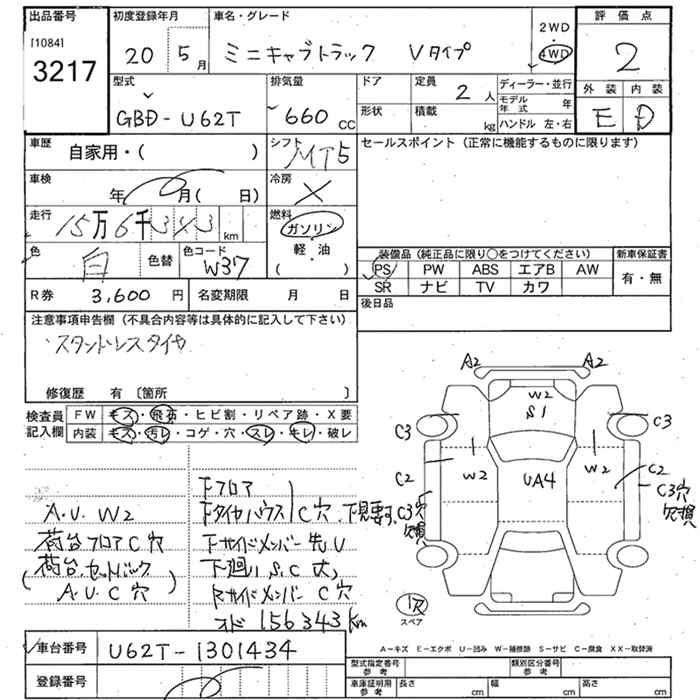 出品番号 初度登録年月 車名・グレード 評価点
[1084] 2WD
3217 20 5月 ミニキャブトラック Vタイプ 4WD 2
型式 排気量 ドア 定員 2人 ディーラー・並行 外装 内装
GBD-U62T 660cc 形状 積載 kg モデル年式 年 E D
ハンドル 左・右
車歴 自家用・( ) シフト MT5 セールスポイント(正常に機能するものに限ります)
車検 年 月( 日) 冷房 ×
走行 15万6千343km 燃料 ガソリン・軽・油 ( )
色 白 色替 色コード W37 装備品(純正品に限り○をつけてください) 新車保証書
PS PW ABS エアB AW 有・無
SR ナビ TV カワ
R券 3,600円 名変期限 月 日 後日品
注意事項申告欄(不具合内容等は具体的に記入して下さい)
スタンドレスタイヤ
修復歴 有〔箇所 〕
検査員記入欄 FW キズ・飛石・ヒビ割・リペア跡・X要
内装 キズ・汚レ・コゲ・穴・スレ・キレ・破レ
A2 A2
W2
S1
C3 C3
C2 W2 UA4 W2 C2
C3穴 欠損 C3穴 欠損
下フロア
下タイヤハウス C穴、下見要す
A.U.W2
荷台フロアC穴 下サイドメンバー先U
(荷台、セットバック 下廻りS.C大
A.U.C穴) Rサイドメンバー C穴
メーター 156343km
穴
スペア
車台番号 U62T-1301434
A-キズ E-エクボ U-凹み W-補修跡 S-サビ C-腐食 XX-取替済
登録番号 型式指定番号 参考 類別区分番号 参考
車庫証明用 参考 長さ cm 幅 cm 高さ cm